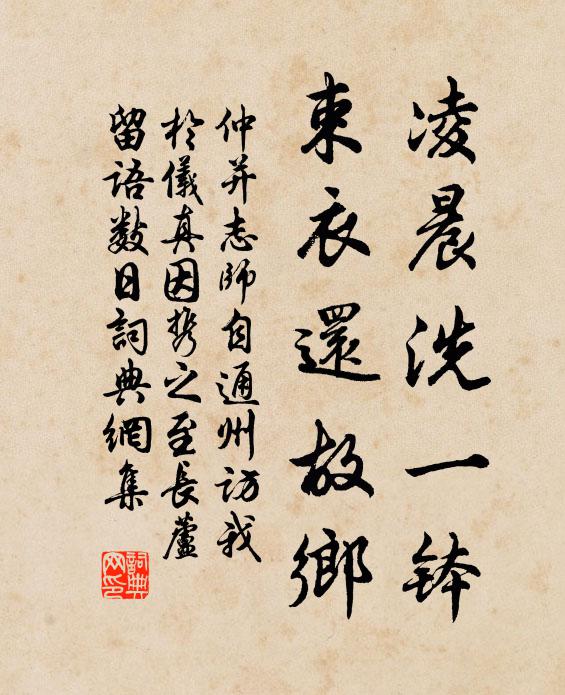 凌晨洗一钵
束衣還故鄉
仲并志師自通州訪我
於儀真因携之至長蘆
留語数日詞典網集
詞典网印